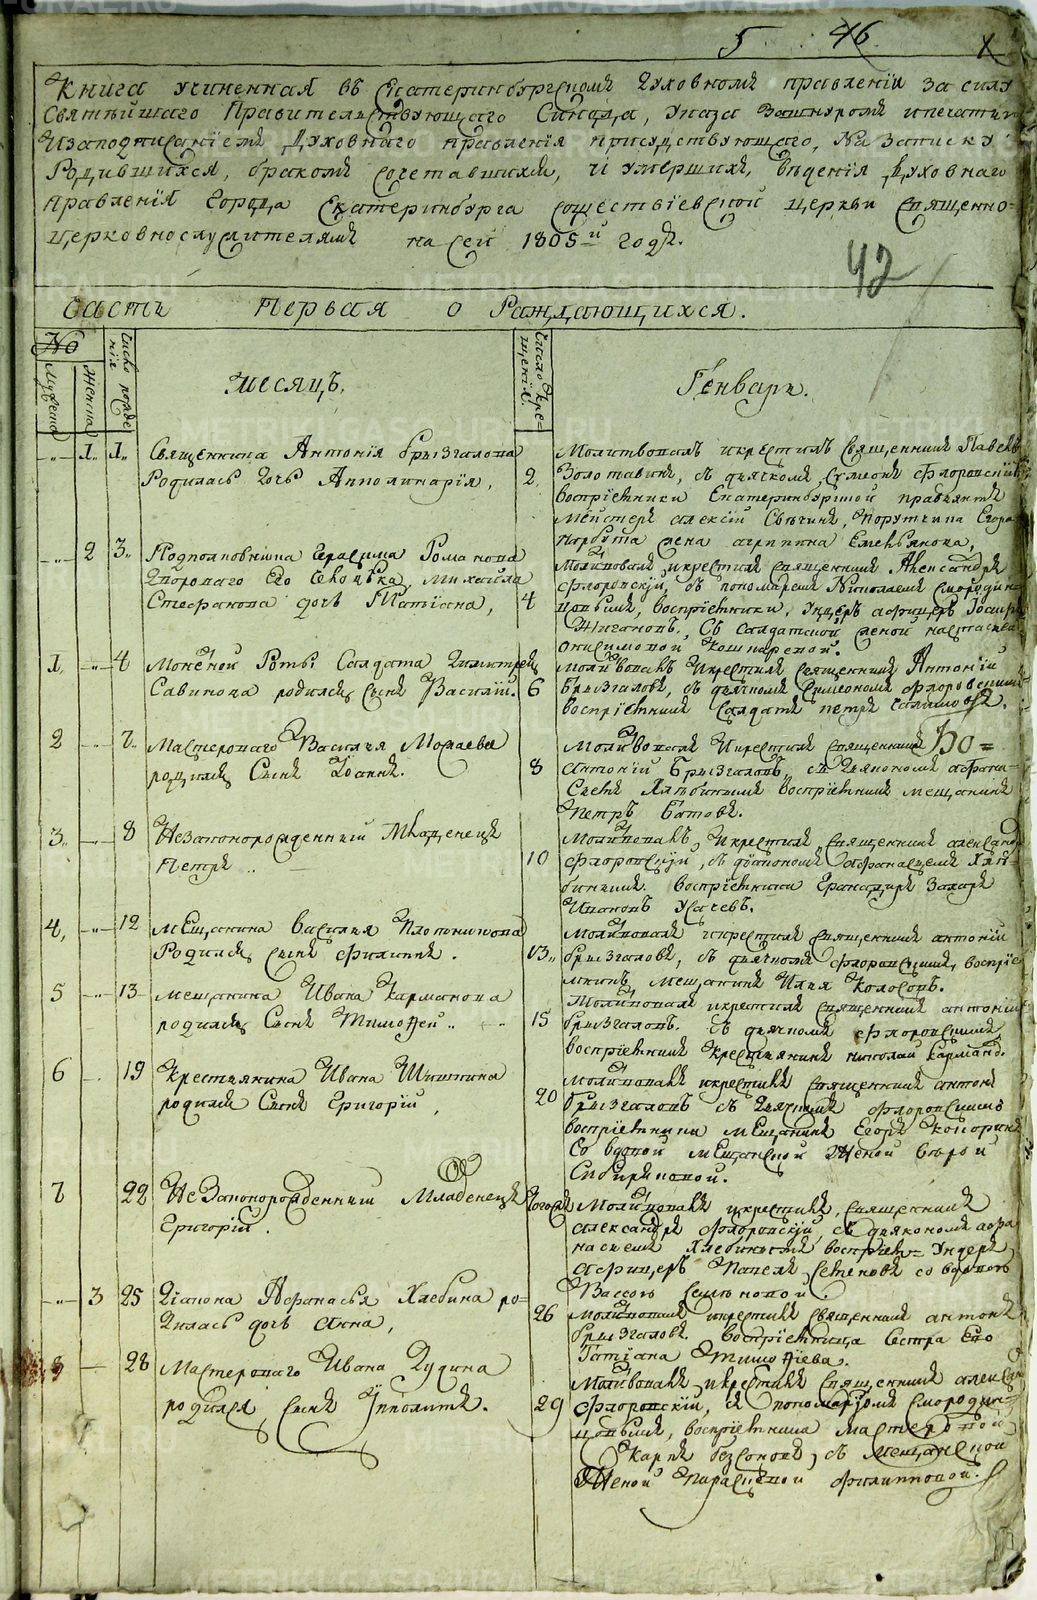 5 46
Книга учиненная въ Екатеринбургскомъ Духовномъ правленіи за силу
Святѣйшаго Правительствующаго Сѵнода, Указа Зашнуромъ ипечатью
Изаподписаніемъ Духовнаго правленія присудствующаго, На записку
Родившихся, бракомъ сочетавшихся, и умершихъ, вѣденія Духовнаго
правленія Города Екатеринбурга сошествіевской церкви священно-
церковнослужителямъ на сей 1805й годъ.
42
Часть Первая о Раждающихся.
No
Мужеска
Женска
Число рожде
нія
Мѣсяцъ.
Число Кре-
щенія
Генварь.
1. 1. Священника Антонія брызгалова
Родилась дочь Апполинарія,
2. Молитвовалъ икрестилъ Священникъ Павелъ
Золотавинъ, съ дьячкомъ Сумеономъ Флоровскимъ
воспріемники Екатеринбурской правіянтъ
Мейстеръ алексій Свѣчинъ, Порутчика Егора
жена агрипина Емельянова,
2 3. Подполковника Герасима Романова
двороваго Его человѣка, Михаила
Стефанова дочь Татіана,
4 Молитвовалъ икрестилъ священникъ Александръ
Флоровскій, съ пономаремъ Николаемъ Смородин-
цовымъ, воспріемники, Ундеръ афицеръ Іосифъ
Жигановъ, Съ Салдатской женой настасьей
онисимовой Кошкаревой.
1, 4 Монетной Роты Салдата Димитрея
Савинова родился сынъ Василій.
6 Молитвовалъ Икрестилъ священникъ Антоній
Брызгаловъ, съ дьячкомъ Симеономъ Флоровскимъ
воспріемникъ Салдатъ петръ
2 7. Мастероваго Василья Мокаева
родился Сынъ Іоаннъ.
8 Молитвовалъ Икрестилъ священникъ
Антоній Брызгаловъ, съ дьякономъ Афана-
сьемъ Хлѣбинымъ воспріемникъ мещанинъ
Петръ Батовъ.
3. 8 Незаконорожденный Младенецъ
Петръ
10 Молитвовалъ, Икрестилъ, священникъ александръ
Флоровскій, съ дьякономъ Афанасьемъ Хлѣ-
бинымъ. воспріемники Гранадиръ Захаръ
Ивановъ Усачевъ.
4, 12 Мещанина Василья Плотникова
Родился сынъ Филиппъ.
13. Молитвовалъ икрестилъ священникъ антоній
брызгаловъ, съ дьячкомъ Флоровскимъ, воспріе
мникъ мещанинъ Илья Колосовъ.
5 13 мещанина Ивана Карманова
родился Сынъ Тимофей
15 Молитвовалъ икрестилъ священникъ антоній
брызгаловъ. съ дьячкомъ Флоровскимъ,
воспріемникъ крестьянинъ николай Карманов.
6 19 Крестьянина Ивана Шишкина
родился Сынъ Григорій,
20 Молитвовалъ икрестилъ священникъ антоній
брызгаловъ съ дьячкомъ Флоровскимъ
воспріемники мещанинъ Егоръ Кокоринъ
Со вдовой мещанской женой вѣрой
Сибиряковой.
7 22 Незаконорожденный Младенецъ
Григорій.
Молитвовалъ икрестилъ, священникъ
александръ Флоровскій, съ дьякономъ афа
насьемъ Хлебинымъ воспріем= Ундеръ
Афицеръ Павелъ Семеновъ со вдовою
Вассою Семеновой.
3 25 Діакона Афанасья Хлебина ро=
дилась дочь Анна,
26 молитвовалъ икрестилъ священникъ антоній
брызгаловъ. воспріемница Сестра Его
Татіана Тимофѣева.
8 28 Мастероваго Ивана Дудина
родился, Сынъ Ипполитъ.
29 Молитвовалъ икрестилъ священникъ алексан
Флоровскій, съ пономаремъ Смородин-
цовымъ, воспріемника мастеровой
Карпъ безсоновъ, съ мещанской
Женой Параскевой Филипповой.